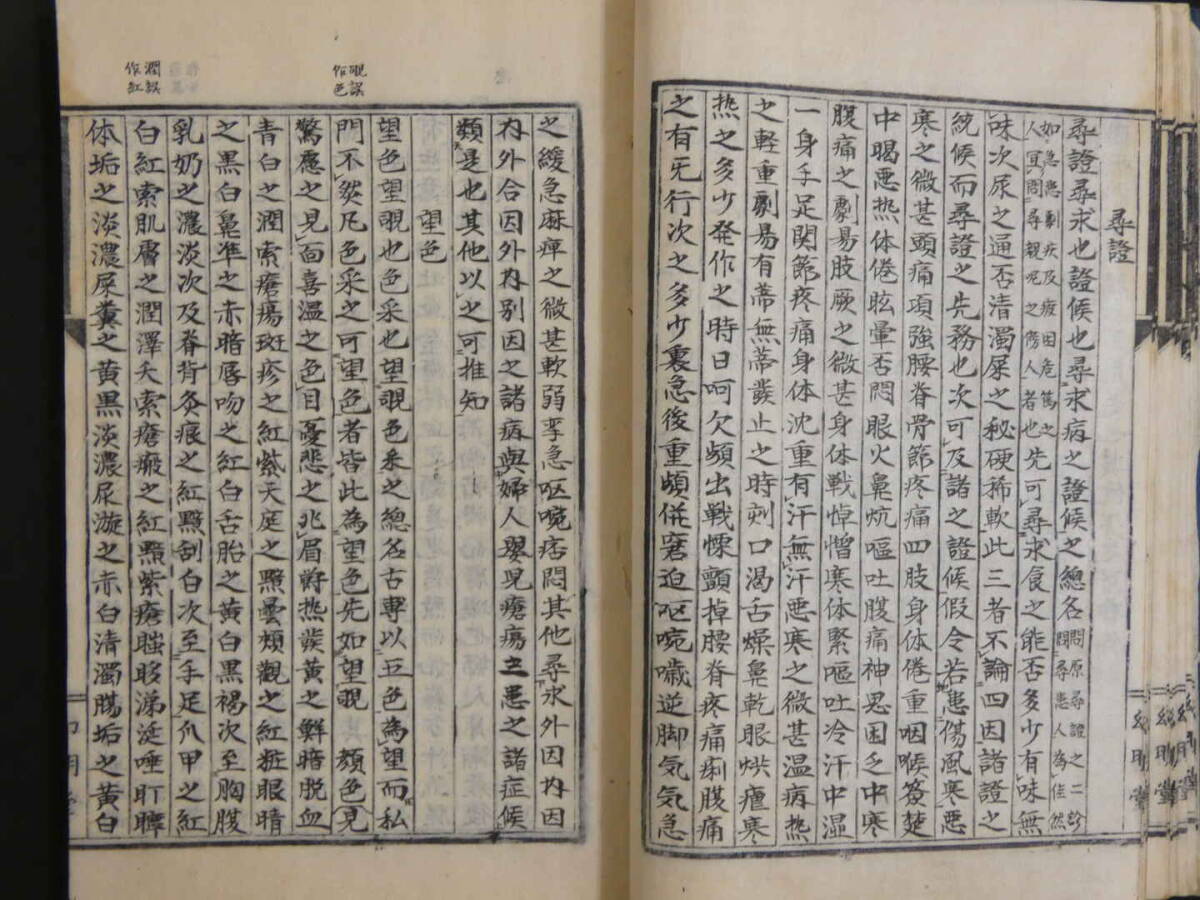 尋證
尋證尋求也證候也尋求病之證候之總名問原尋證之二診問尋患人為佳然
如急患劇疾及疲困危篤之人冥問尋親昵之傍人者也先可尋求食之能否多少有味無
味次尿之通否清濁屎之秘硬稀軟此三者不論四因諸證之
統候而尋證之先務也次可及諸之證候假令若患傷風寒悪
寒之微甚頭痛項強腰脊骨節疼痛四肢身体倦重咽喉簽楚
中暍悪热体倦眩暈否悶眼火鼻炕嘔吐腹痛神思困乏中寒
腹痛之劇易肢厥之微甚身体戦悼憎寒体緊嘔吐冷汗中湿
一身手足関節疼痛身体沈重有汗無汗悪寒之微甚温病热
之軽重劇易有蒂無蒂發止之時刻口渴舌燥鼻乾眼烘瘧寒
热之多少発作之時日呵欠頻出戦慄顫掉腰脊疼痛痢腹痛
之有无行次之多少裏急後重頻併窘迫嘔噦噦逆脚気気急
之緩急麻痺之微甚軟弱挛急嘔噦痞悶其他尋求外因内因
内外合因外内別因之諸病與婦人嬰児瘡瘍三患之諸症候
類是也其他以之可推知
望色
望色望覗也色采也望覗色采之總名古専以五色為望而私
門不然凡色采之可望色者皆此為望色先如望覗其顔色見
驚應之見面喜温之色目憂悲之兆眉欝热發黄之鮮暗脱血
青白之潤索瘡瘍斑疹之紅紫天庭之黑曇頬觀之紅粧眼晴
之黒白鼻準之赤暗唇吻之紅白舌胎之黄白黒褐次至胸腹
乳奶之濃淡次及脊背灸痕之紅黑刮白次至手足爪甲之紅
白紅索肌膚之潤澤夭索瘡瘢之紅黑紫瘡眵涕涎唾盯聹
体垢之淡濃屎糞之黄黒淡濃尿漩之赤白清濁腸垢之黄白
覗誤作色
潤誤作紅